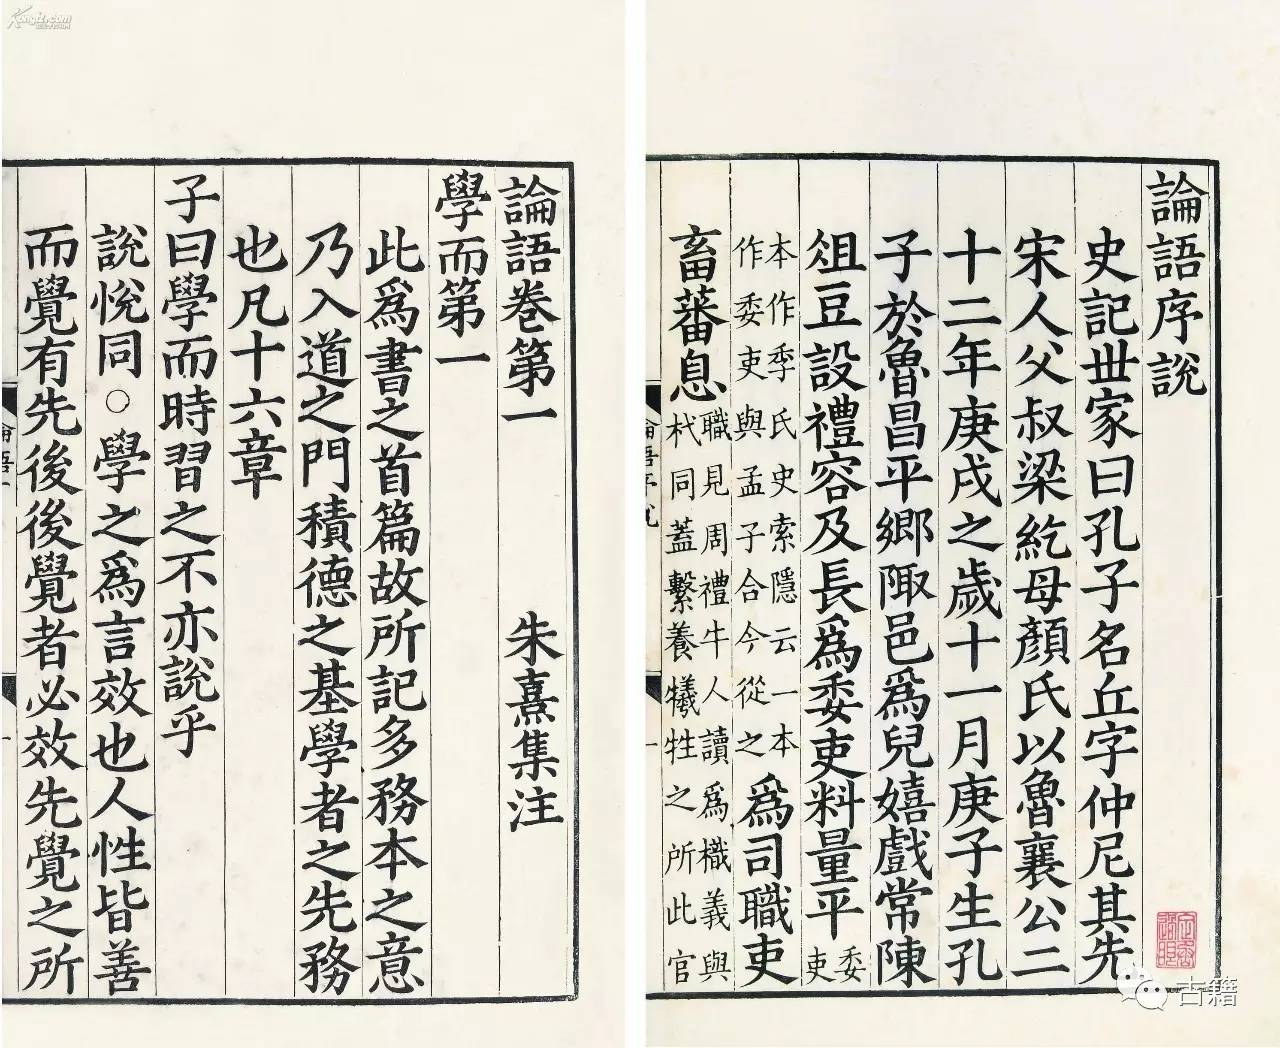 論語序說
史記世家曰孔子名丘字仲尼其先
宋人父叔梁紇母顏氏以魯襄公二
十二年庚戌之歲十一月庚子生孔
子於魯昌平鄉陬邑爲兒嬉戲常陳
俎豆設禮容及長爲委吏料量平委吏
本作季氏史索隱云一本作委吏與孟子合今從之爲司職吏
畜蕃息職見周禮牛人讀爲樴義與杙同蓋繫養犧牲之所此官
論語卷第一 朱熹集注
學而第一
此爲書之首篇故所記多務本之意
乃入道之門積德之基學者之先務
也凡十六章
子曰學而時習之不亦說乎
說悅同○學之爲言效也人性皆善
而覺有先後後覺者必效先覺之所
古籍